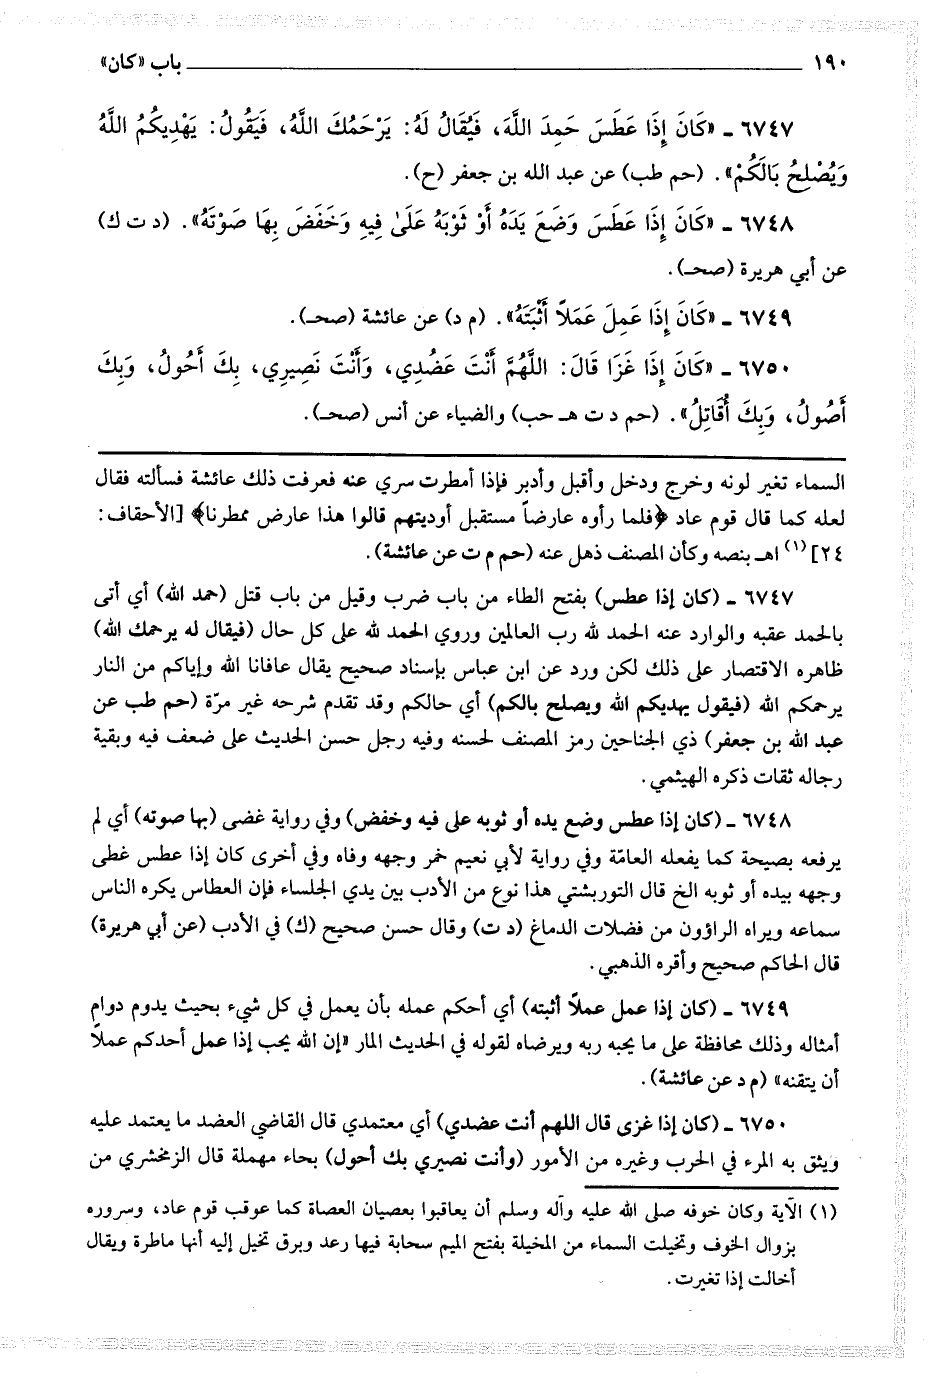 ١٩٠ باب «كان»
٦٧٤٧ ـ «كَانَ إِذَا عَطَسَ حَمِدَ اللَّهَ، فَيُقَالُ لَهُ: يَرْحَمُكَ اللَّهُ، فَيَقُولُ: يَهْدِيكُمُ اللَّهُ
وَيُصْلِحُ بَالَكُمْ». (حم طب) عن عبد الله بن جعفر (ح).
٦٧٤٨ ـ «كَانَ إِذَا عَطَسَ وَضَعَ يَدَهُ أَوْ ثَوْبَهُ عَلَىٰ فِيهِ وَخَفَضَ بِهَا صَوْتَهُ». (د ت ك)
عن أبي هريرة (صحـ).
٦٧٤٩ ـ «كَانَ إِذَا عَمِلَ عَمَلاً أَثْبَتَهُ». (م د) عن عائشة (صحـ).
٦٧٥٠ ـ «كَانَ إِذَا غَزَا قَالَ: اللَّهُمَّ أَنْتَ عَضُدِي، وَأَنْتَ نَصِيرِي، بِكَ أَحُولُ، وَبِكَ
أَصُولُ، وَبِكَ أُقَاتِلُ». (حم د ت هـ حب) والضياء عن أنس (صحـ).
السماء تغير لونه وخرج ودخل وأقبل وأدبر فإذا أمطرت سري عنه فعرفت ذلك عائشة فسألته فقال
لعله كما قال قوم عاد ﴿فلما رأوه عارضاً مستقبل أوديتهم قالوا هذا عارض ممطرنا﴾ [الأحقاف:
٢٤](١) اهـ بنصه وكأن المصنف ذهل عنه (حم م ت عن عائشة).
٦٧٤٧ ـ (كان إذا عطس) بفتح الطاء من باب ضرب وقيل من باب قتل (حمد الله) أي أتى
بالحمد عقبه والوارد عنه الحمد لله رب العالمين وروي الحمد لله على كل حال (فيقال له يرحمك الله)
ظاهره الاقتصار على ذلك لكن ورد عن ابن عباس بإسناد صحيح يقال عافانا الله وإياكم من النار
يرحمكم الله (فيقول يهديكم الله ويصلح بالكم) أي حالكم وقد تقدم شرحه غير مرّة (حم طب عن
عبد الله بن جعفر) ذي الجناحين رمز المصنف لحسنه وفيه رجل حسن الحديث على ضعف فيه وبقية
رجاله ثقات ذكره الهيثمي.
٦٧٤٨ ـ (كان إذا عطس وضع يده أو ثوبه على فيه وخفض) وفي رواية غضى (بها صوته) أي لم
يرفعه بصيحة كما يفعله العامّة وفي رواية لأبي نعيم خمر وجهه وفاه وفي أخرى كان إذا عطس غطى
وجهه بيده أو ثوبه الخ قال التوربشتي هذا نوع من الأدب بين يدي الجلساء فإن العطاس يكره الناس
سماعه ويراه الراؤون من فضلات الدماغ (د ت) وقال حسن صحيح (ك) في الأدب (عن أبي هريرة)
قال الحاكم صحيح وأقره الذهبي.
٦٧٤٩ ـ (كان إذا عمل عملاً أثبته) أي أحكم عمله بأن يعمل في كل شيء بحيث يدوم دوام
أمثاله وذلك محافظة على ما يحبه ربه ويرضاه لقوله في الحديث المار «إن الله يحب إذا عمل أحدكم عملاً
أن يتقنه» (م د عن عائشة).
٦٧٥٠ ـ (كان إذا غزى قال اللهم أنت عضدي) أي معتمدي قال القاضي العضد ما يعتمد عليه
ويثق به المرء في الحرب وغيره من الأمور (وأنت نصيري بك أحول) بحاء مهملة قال الزمخشري من
(١) الآية وكان خوفه صلى الله عليه وآله وسلم أن يعاقبوا بعصيان العصاة كما عوقب قوم عاد، وسروره
بزوال الخوف وتخيلت السماء من المخيلة بفتح الميم سحابة فيها رعد وبرق تخيل إليه أنها ماطرة ويقال
أخالت إذا تغيرت.